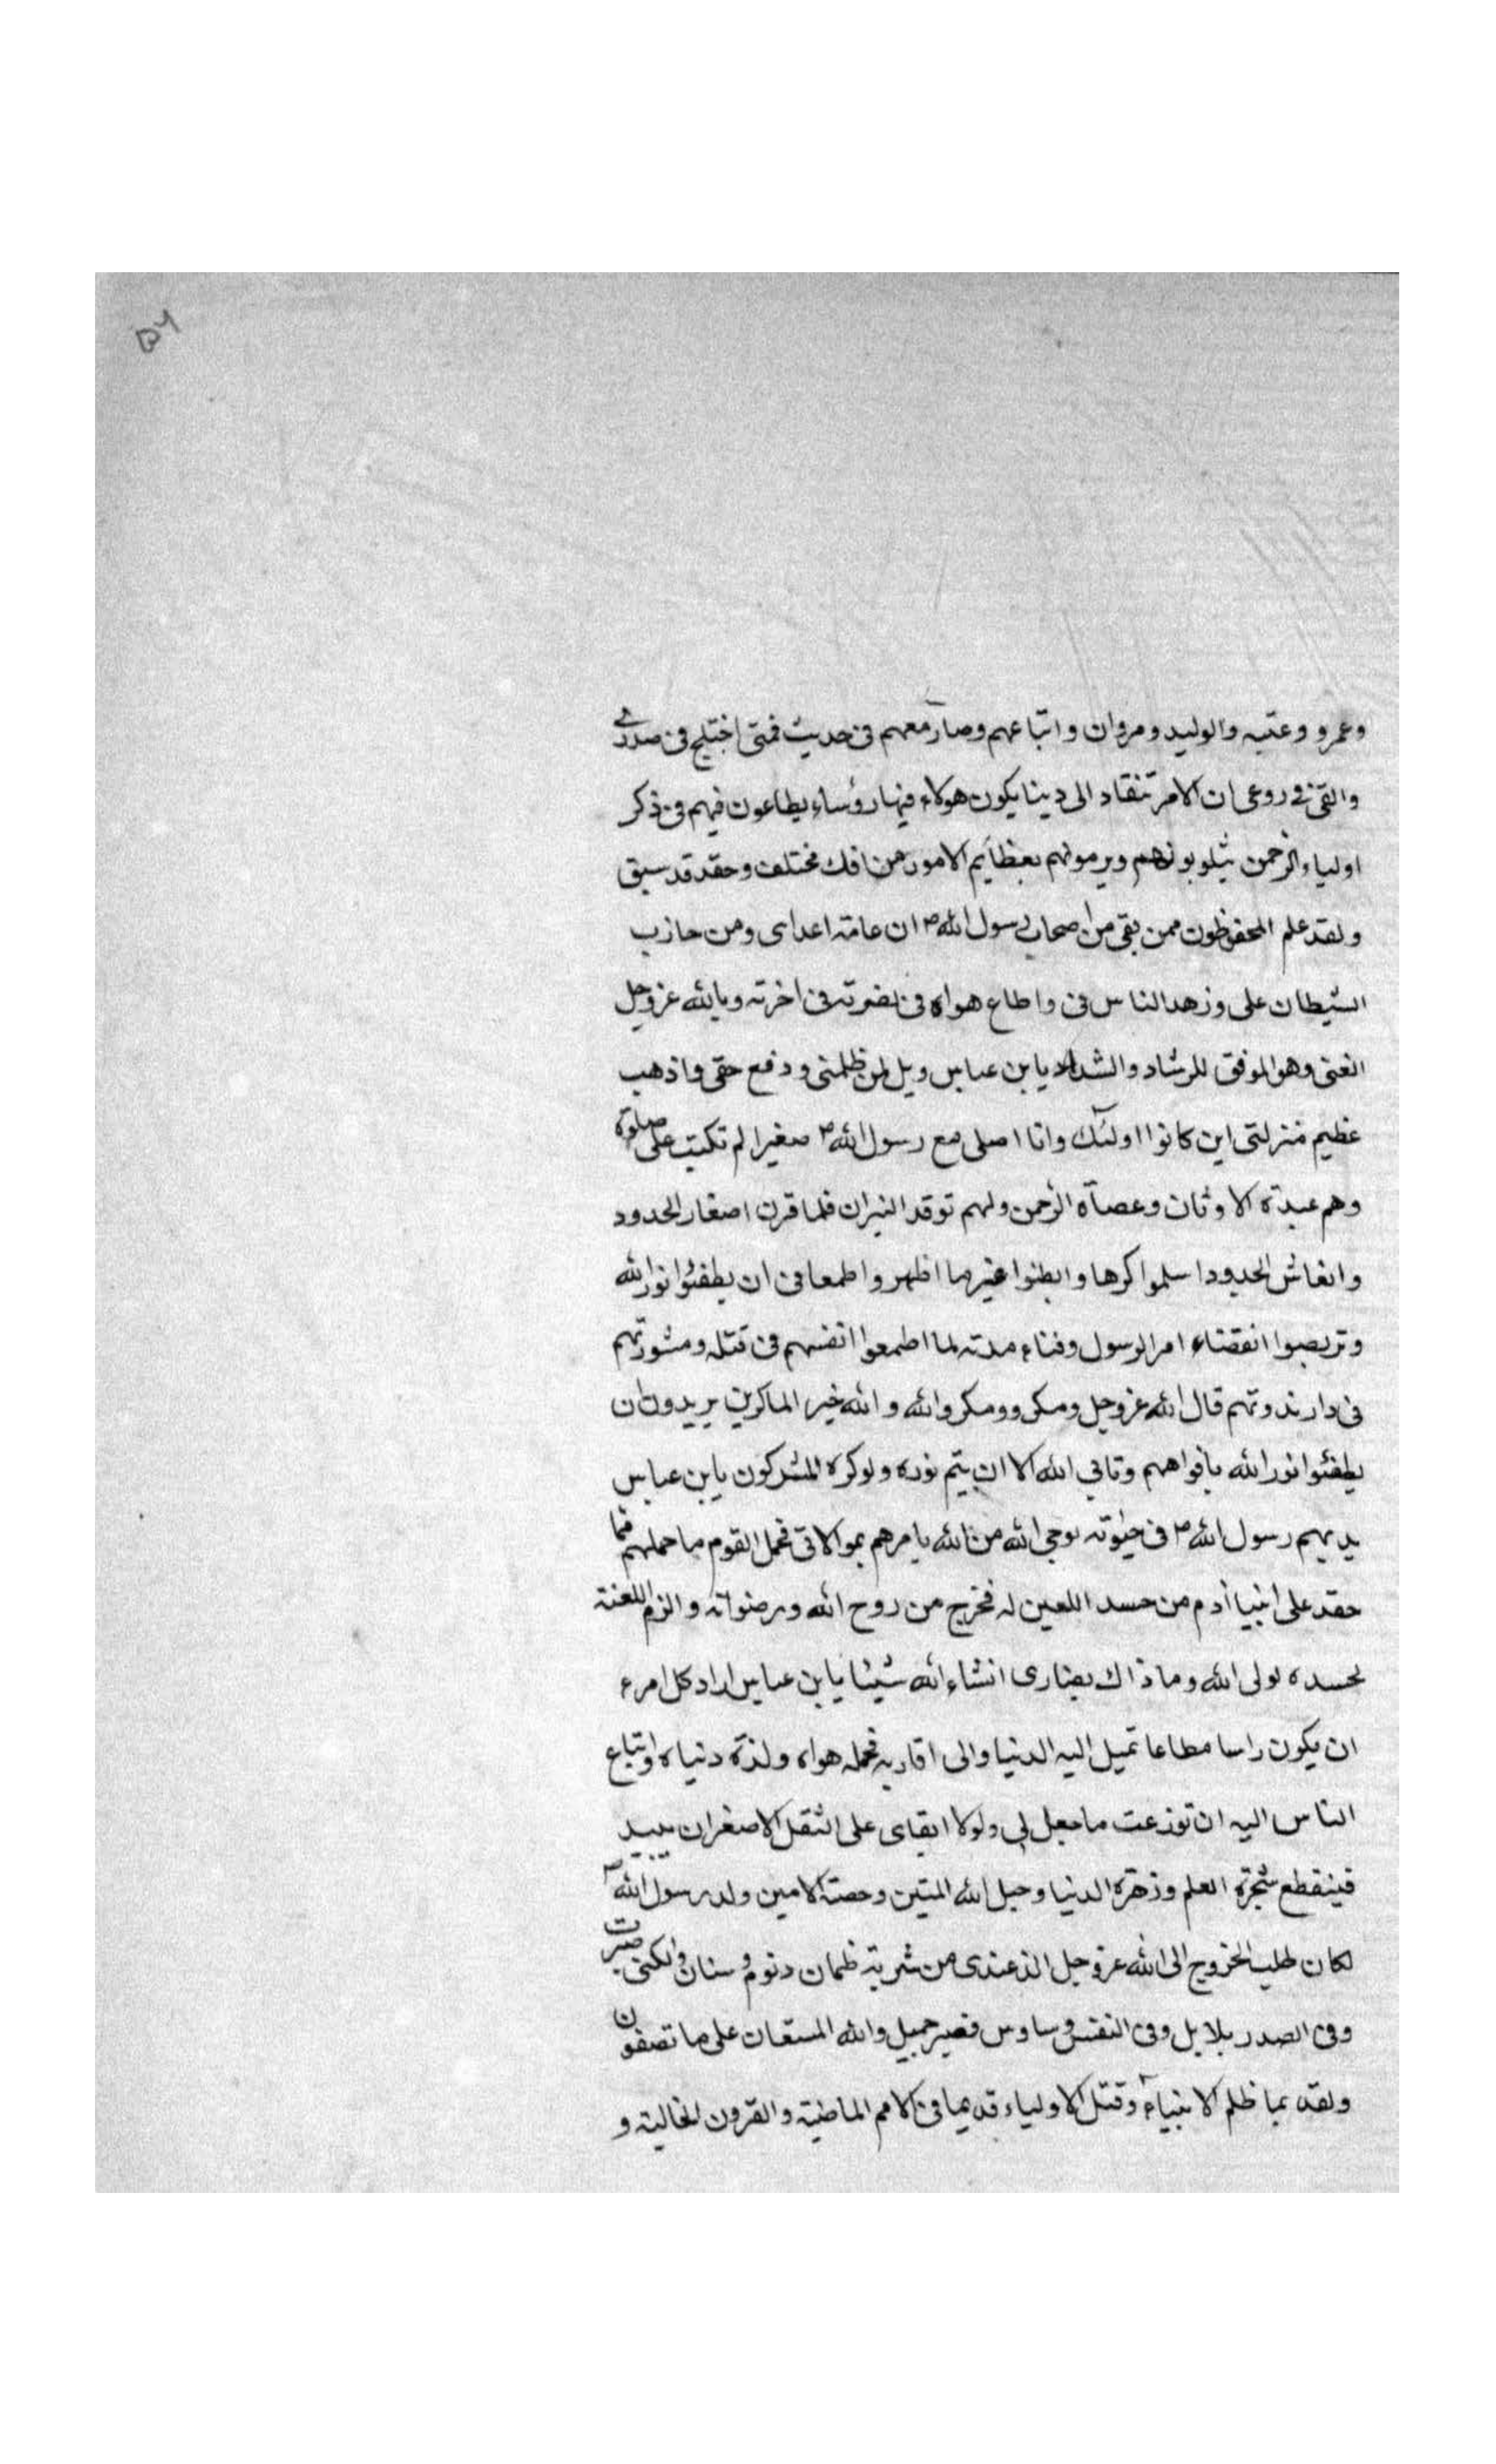 ۵۶
وعمرو وعتبه والوليد ومروان واتباعهم وصار معهم فى حديث فمتى اختلج فى صدرى
والقى فى روعى ان الامر تنقاد الى دينا يكون هولاء فيها رؤساء يطاعون فيهم فى ذكر
اولياء الرحمن يثلوبونهم ويرمونهم بعظايم الامور من افك مختلف وحقد قد سبق
ولقد علم المحفوظون ممن بقى من اصحاب رسول الله ص ان عامة اعداى ومن حازب
الشيطان على وزهد الناس فى واطاع هواه فى نضرته فى اخرته وبالله عز وجل
الغنى وهو الموفق للرشاد والسداد يابن عباس ويل لمن ظلمنى ودفع حقى واذهب
عظيم منزلتى اين كانوا اولئك وانا اصلى مع رسول الله ص صغيرا لم تكتب على صلوة
وهم عبدة الاوثان وعصاة الرحمن ولهم توقد النيران فلما قرن اصغار الخدود
واتغاش الحدود اسلموا كرها وابطنوا غير ما اظهروا طمعا فى ان يطفئوا نور الله
وتربصوا انقضاء امر الرسول وفناء مدته لما اطمعوا انفسهم فى قتله ومشورتهم
فى دار ندوتهم قال الله عز وجل ومكروا ومكر والله والله خير الماكرين يريدون ان
يطفئوا نور الله بافواههم وتابى الله الا ان يتم نوره ولوكره المشركون يابن عباس
يديهم رسول الله ص فى حيوته بوحى الله من الله يامرهم بموالاتى فحمل القوم ما حملهم مما
حقد على ابينا آدم من حسد اللعين له فخرج من روح الله ورضوانه والزم اللعنة
لحسده لولى الله وما ذاك بضارى انشاء الله شيئا يابن عباس اراد كل امرء
ان يكون راسا مطاعا تميل اليه الدنيا والى اقاربه فحمله هواه ولذة دنياه واتباع
الناس اليه ان توزعت ما جعل لى ولولا ابقاى على الثقل الاصغر ان يبيد
فينقطع شجرة العلم وزهرة الدنيا وحبل الله المتين وحصنه الامين ولد رسول الله ص
لكان طلب الخروج الى الله عز وجل الذ عندى من شربة ظمان ونوم وسنان ولكنى صبرت
وفى الصدر بلابل وفى النفس وساوس فصبر جميل والله المستعان على ما تصفون
ولقد بما ظلم الانبياء وقتل الاولياء قديما فى الامم الماضية والقرون الخالية و